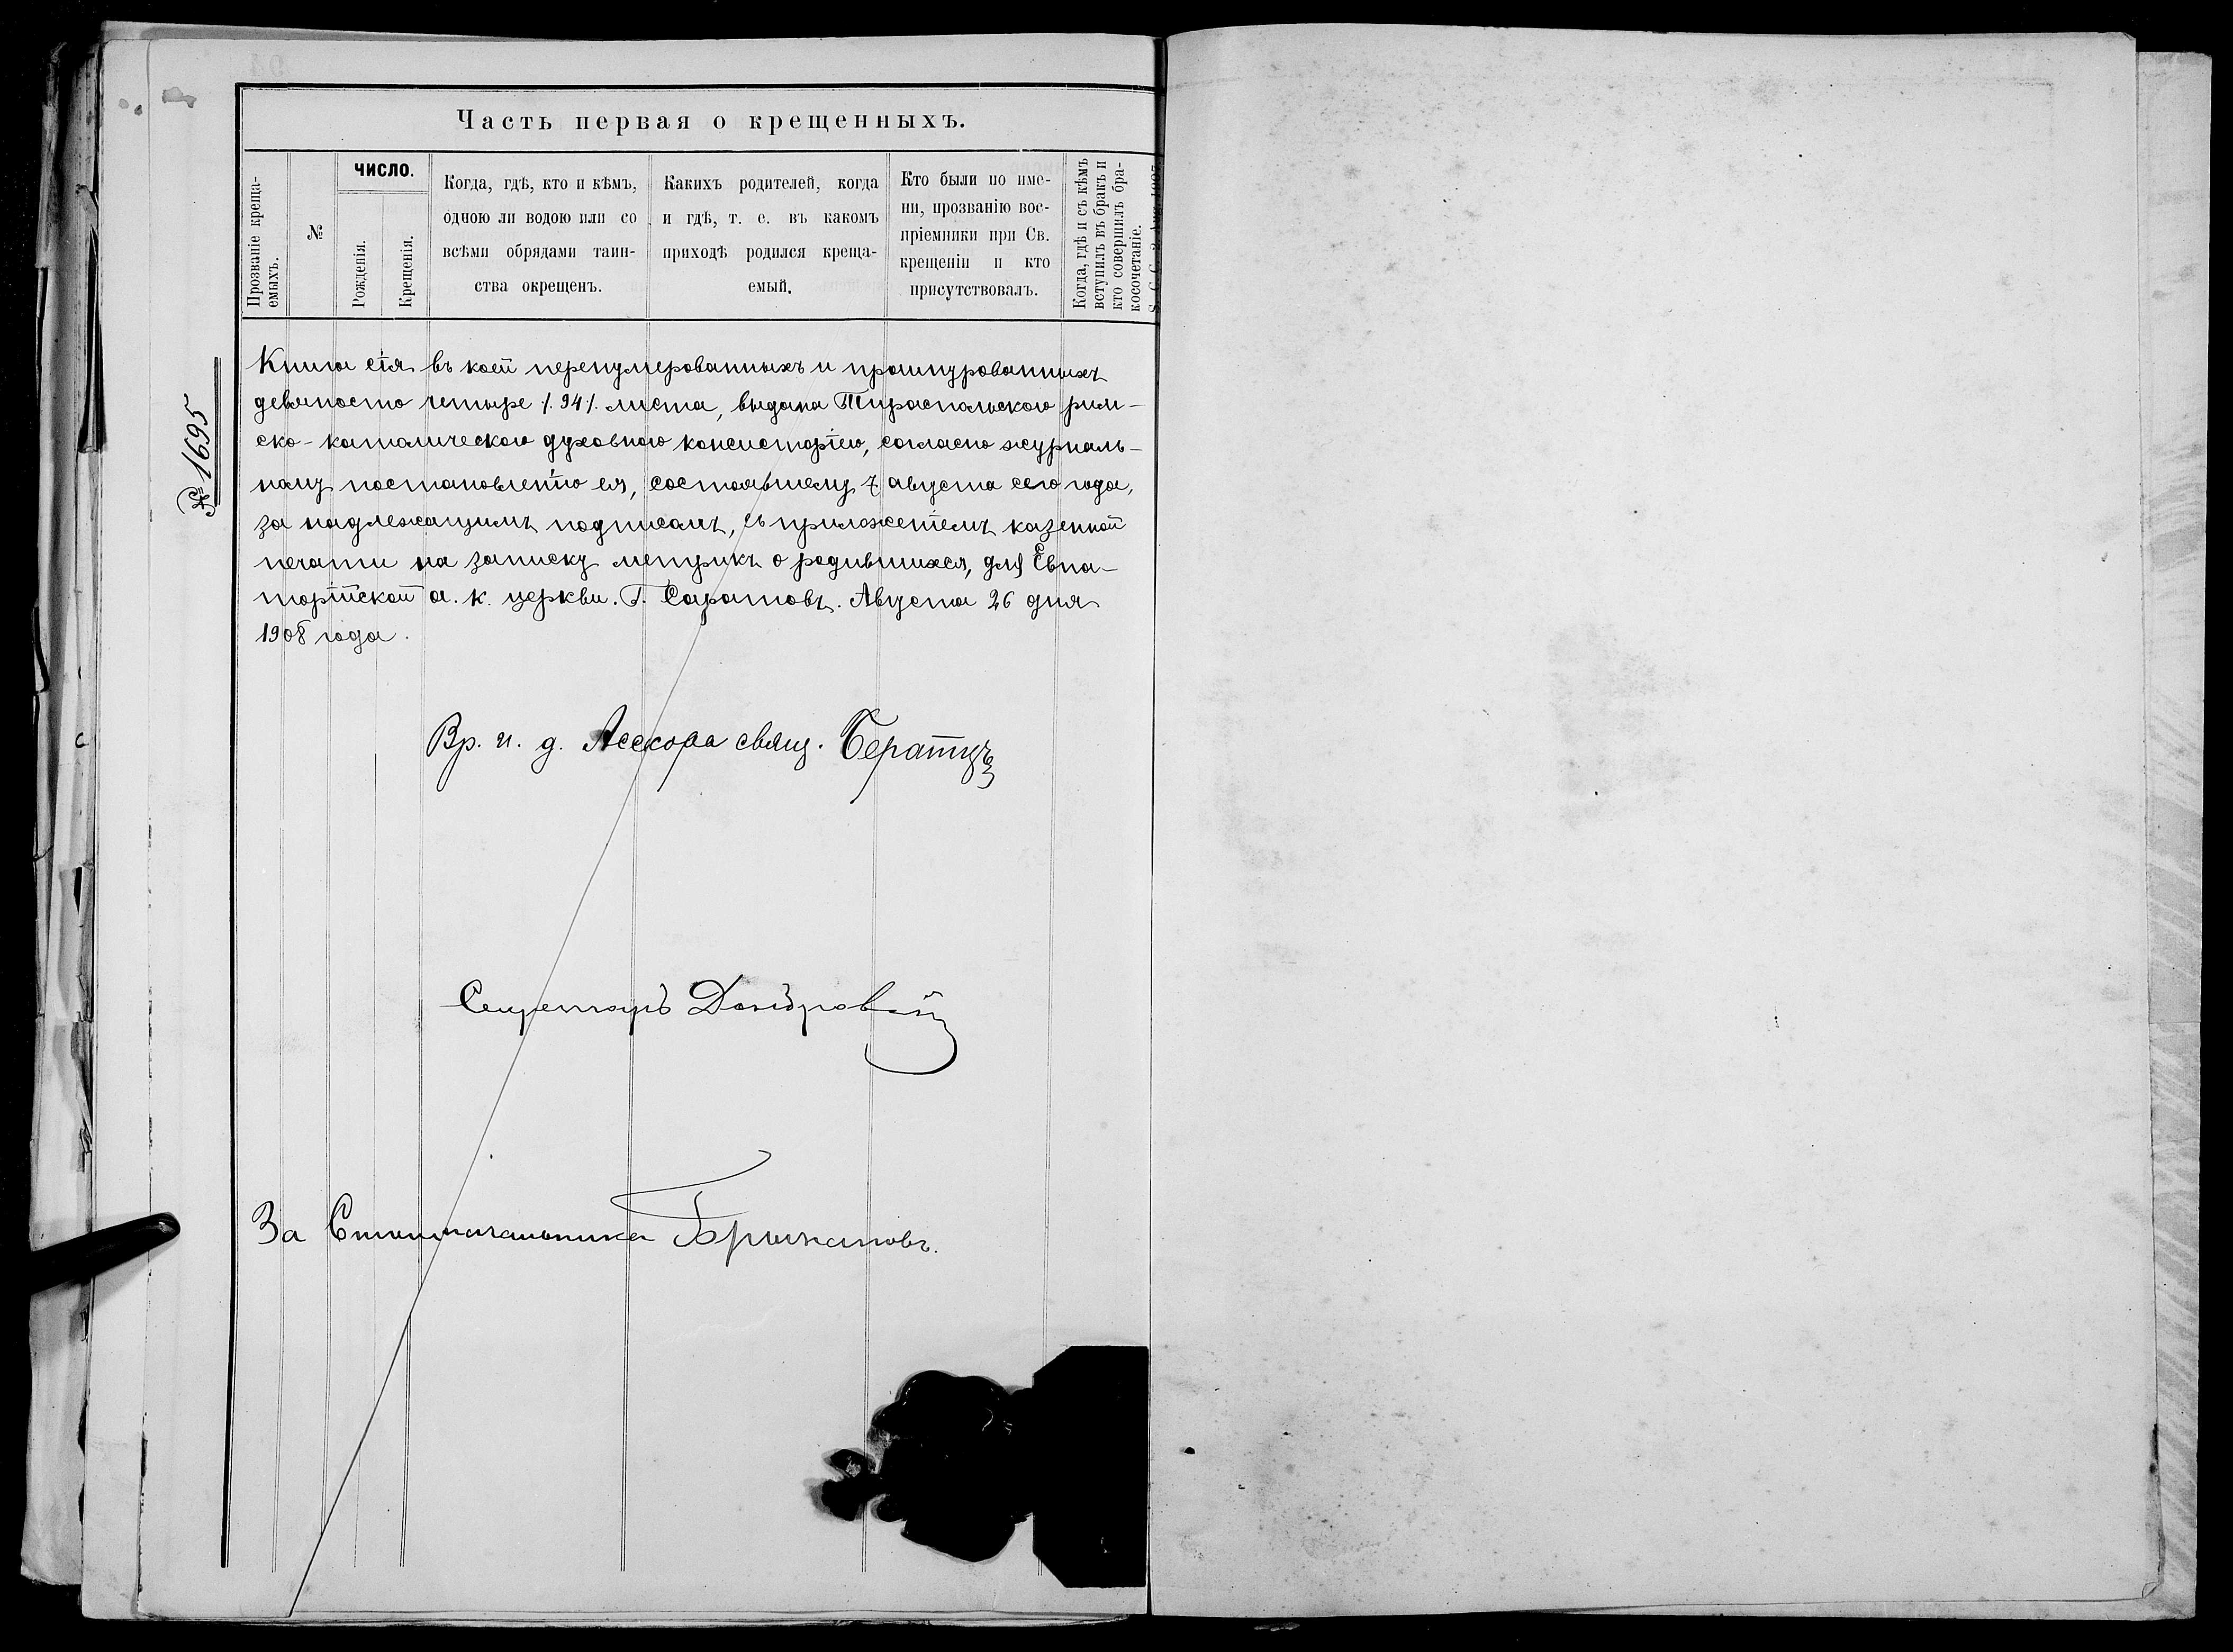 Часть первая о крещенныхъ.
Прозваніе креща-
емыхъ.
№
ЧИСЛО.
Рожденія.
Крещенія.
Когда, гдѣ, кто и кѣмъ,
одною ли водою или со
всѣми обрядами таин-
ства окрещенъ.
Какихъ родителей, когда
и гдѣ, т. е. въ какомъ
приходѣ родился креща-
емый.
Кто были по име-
ни, прозванію вос-
пріемники при Св.
крещеніи и кто
присутствовалъ.
Когда, гдѣ и съ кѣмъ
вступилъ въ бракъ и
кто совершилъ бра-
косочетаніе.
№ 1695
Книга сія въ коей перенумерованныхъ и прошнурованныхъ
девяносто четыре /. 94 /. листа, выдана Тираспольскою рим-
ско-католическою духовною консисторіею, согласно журналь-
ному постановленію ея, состоявшему 7 августа сего года,
за надлежащимъ подписомъ, съ приложеніемъ казенной
печати на записку метрикъ о родившихся, для Евпа-
торійской а. к. церкви. Г. Саратовъ. Августа 26 дня
1908 года.
Вр. и. д. Асесора свящ. Бератцъ
Секретарь
За Столоначальника